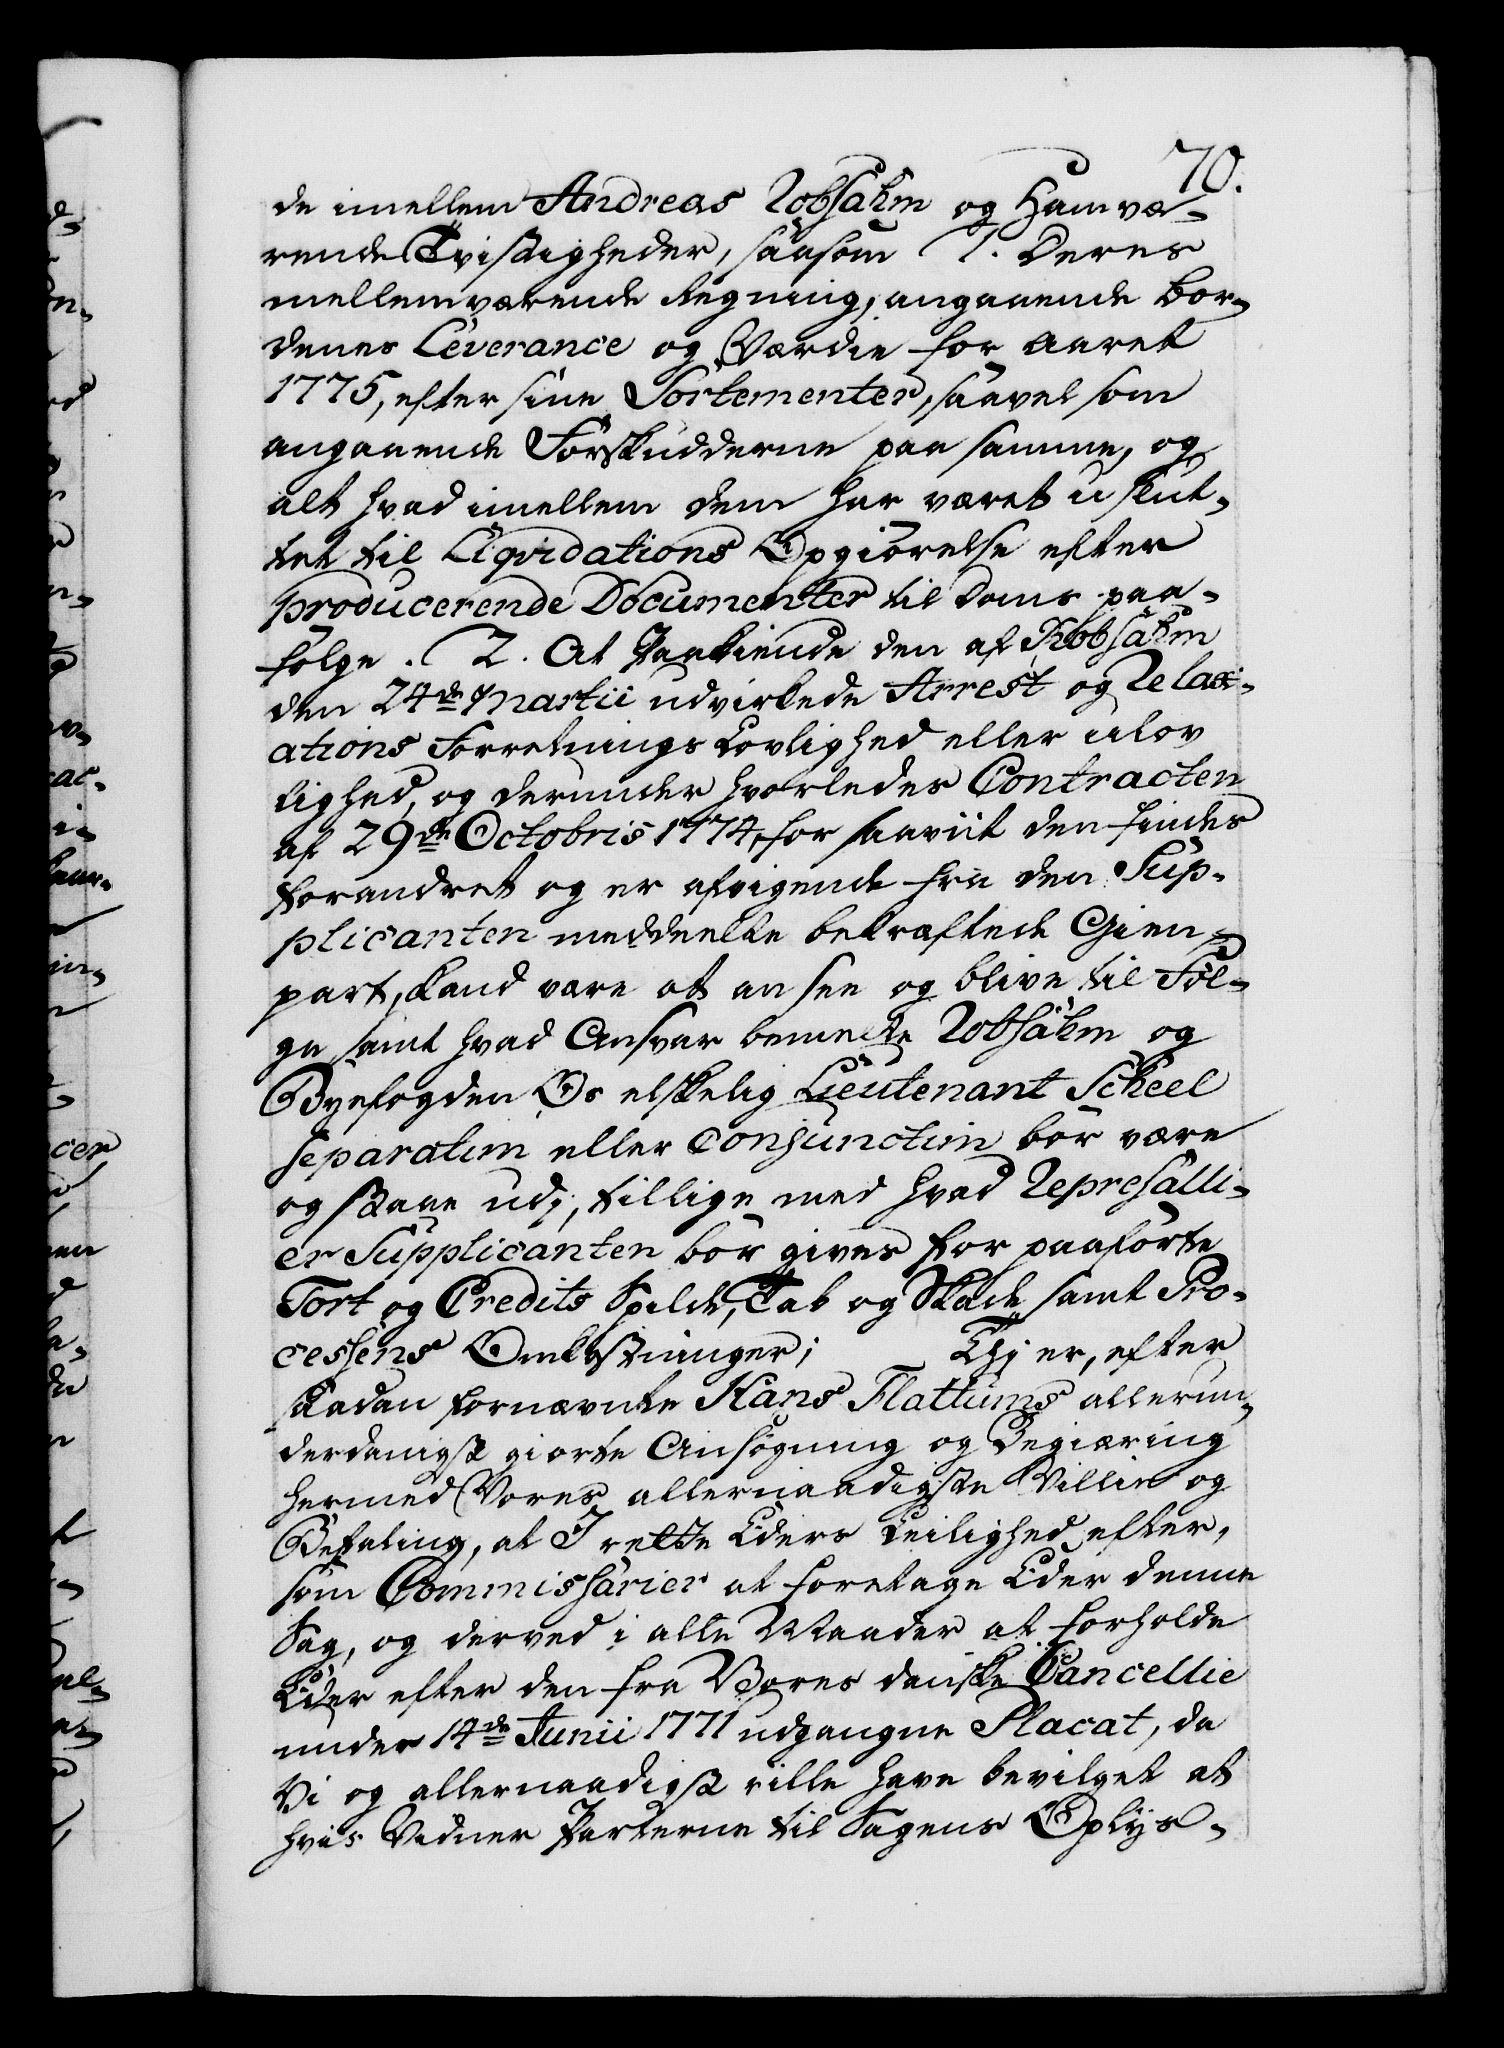 70.
de imellem Andreas Robsahm og Ham væ-
rende Tvistigheder, saasom 1. Deres
mellemværende Regning, angaaende Bor-
denes Leverance og Værdie for Aaret
1775, efter sine Sortementer, saavel som
angaaende Forskudderne paa samme, og
alt hvad imellem dem har været uslut-
tet til Liqvidations Opgiørelse efter
producerende Documenter til Doms paa-
følge. 2. At Paakiende den af Robsahm
den 24de Martii udvirkede Arrest og Relaxi-
ations Forretnings Lovlighed eller ulov
lighed, og derunder hvorledes Contracten
af 29de Octobris 1774, for saaviit den findes
forandret og er afvigende fra den Sup-
plicanten meddeelte bekræftede Gien-
part, kand være at ansee og blive til Føl-
ge samt hvad Ansvar bemelte Robsahm og
Byefogden Os elskelig Lieutenant Scheel
separatim eller conjunctim bør være
og staae udj, tillige med hvad Represalli-
er Supplicanten bør gives for paaførte
Tort og Credits Spilde, Tab og Skade samt Pro-
cessens Omkostninger; Thj er, efter
saadan fornævnte Hans Flattums allerun-
derdanigst giorte Ansøgning og Begiæring
hermed Vores allernaadigste Villie og
Befaling, at I rette Eders Leilighed efter,
som Commissarier at foretage Eder denne
Sag, og derved i alle Maader at forholde
Eder efter den fra Vores danske Cancellie
under 14de Junii 1771 udgangne Placat, da
Vi og allernaadigst ville have bevilget at
hvis Vidner Parterne til Sagens Oplys-